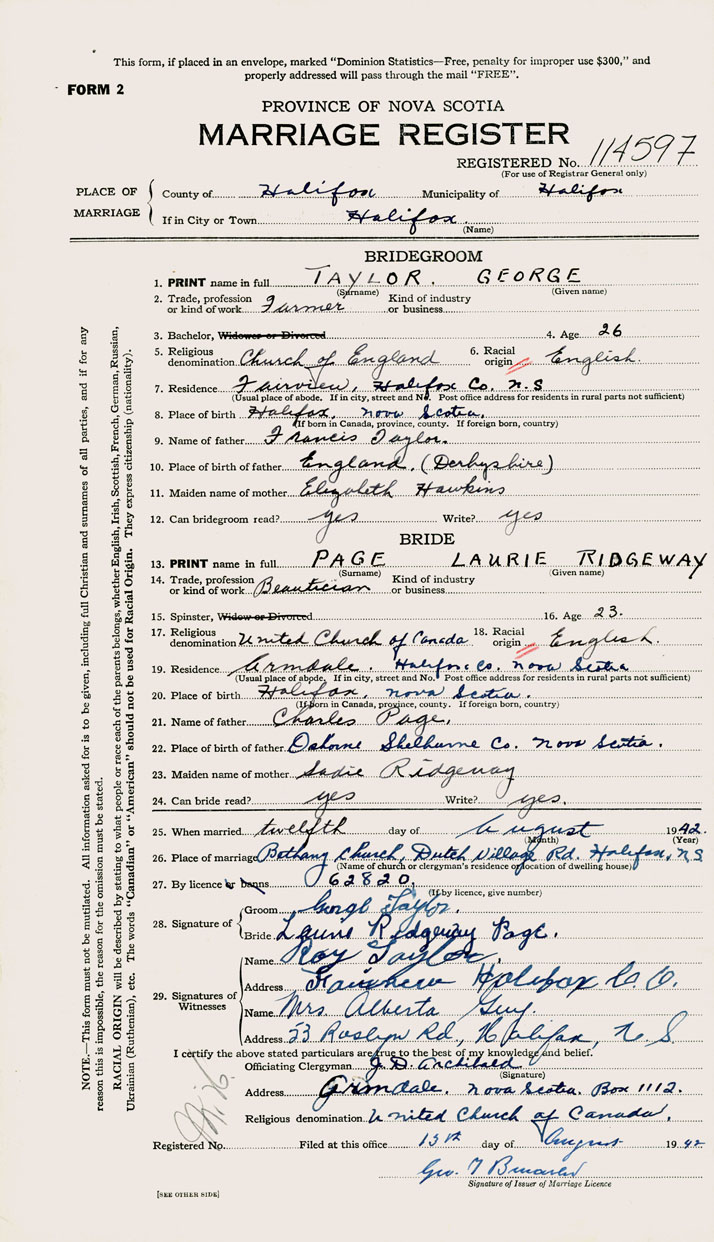 This form, if placed in an envelope, marked "Dominion Statistics—Free, penalty for improper use $300," and
properly addressed will pass through the mail "FREE".
FORM 2
PROVINCE OF NOVA SCOTIA
MARRIAGE REGISTER
REGISTERED No. 114597
(For use of Registrar General only)
PLACE OF MARRIAGE
County of Halifax Municipality of Halifax
If in City or Town Halifax
(Name)
BRIDEGROOM
1. PRINT name in full TAYLOR. GEORGE
(Surname) (Given name)
2. Trade, profession or kind of work Farmer Kind of industry or business
3. Bachelor, Widower or Divorced 4. Age 26
5. Religious denomination Church of England 6. Racial origin English.
7. Residence Fairview, Halifax Co. N.S
(Usual place of abode. If in city, street and No. Post office address for residents in rural parts not sufficient)
8. Place of birth Halifax, Nova Scotia.
(If born in Canada, province, county. If foreign born, country)
9. Name of father Francis Taylor.
10. Place of birth of father England. (Derbyshire)
11. Maiden name of mother Elizabeth Hawkins
12. Can bridegroom read? yes Write? yes
BRIDE
13. PRINT name in full PAGE LAURIE RIDGEWAY
(Surname) (Given name)
14. Trade, profession or kind of work Beautician Kind of industry or business
15. Spinster, Widow or Divorced 16. Age 23.
17. Religious denomination United Church of Canada 18. Racial origin English.
19. Residence Armdale. Halifax Co. Nova Scotia
(Usual place of abode. If in city, street and No. Post office address for residents in rural parts not sufficient)
20. Place of birth Halifax, Nova Scotia.
(If born in Canada, province, county. If foreign born, country)
21. Name of father Charles Page.
22. Place of birth of father Osborne Shelburne Co. Nova Scotia.
23. Maiden name of mother Sadie Ridgeway
24. Can bride read? yes Write? yes.
25. When married twelfth day of August 1942.
(Month) (Year)
26. Place of marriage Bethany Church, Dutch Village Rd. Halifax, N.S
(Name of church or clergyman's residence or location of dwelling house)
27. By licence or banns 62820,
(If by licence, give number)
28. Signature of
Groom George Taylor.
Bride Laurie Ridgeway Page.
29. Signatures of Witnesses
Name Roy Taylor.
Address Fairview Halifax Co.
Name Mrs. Alberta Guy.
Address 53 Roslyn Rd., Halifax, N.S
I certify the above stated particulars are true to the best of my knowledge and belief.
Officiating Clergyman J. D. Archibald
(Signature)
Address Armdale. Nova Scotia. Box 1112.
Religious denomination United Church of Canada.
Registered No. Filed at this office 13th day of August 1942
Geo. T
Signature of Issuer of Marriage Licence
[SEE OTHER SIDE]
NOTE.—This form must not be mutilated. All information asked for is to be given, including full Christian and surnames of all parties, and if for any
reason this is impossible, the reason for the omission must be stated.
RACIAL ORIGIN will be described by stating to what people or race each of the parents belongs, whether English, Irish, Scottish, French, German, Russian,
Ukrainian (Ruthenian), etc. The words "Canadian" or "American" should not be used for Racial Origin. They express citizenship (nationality).